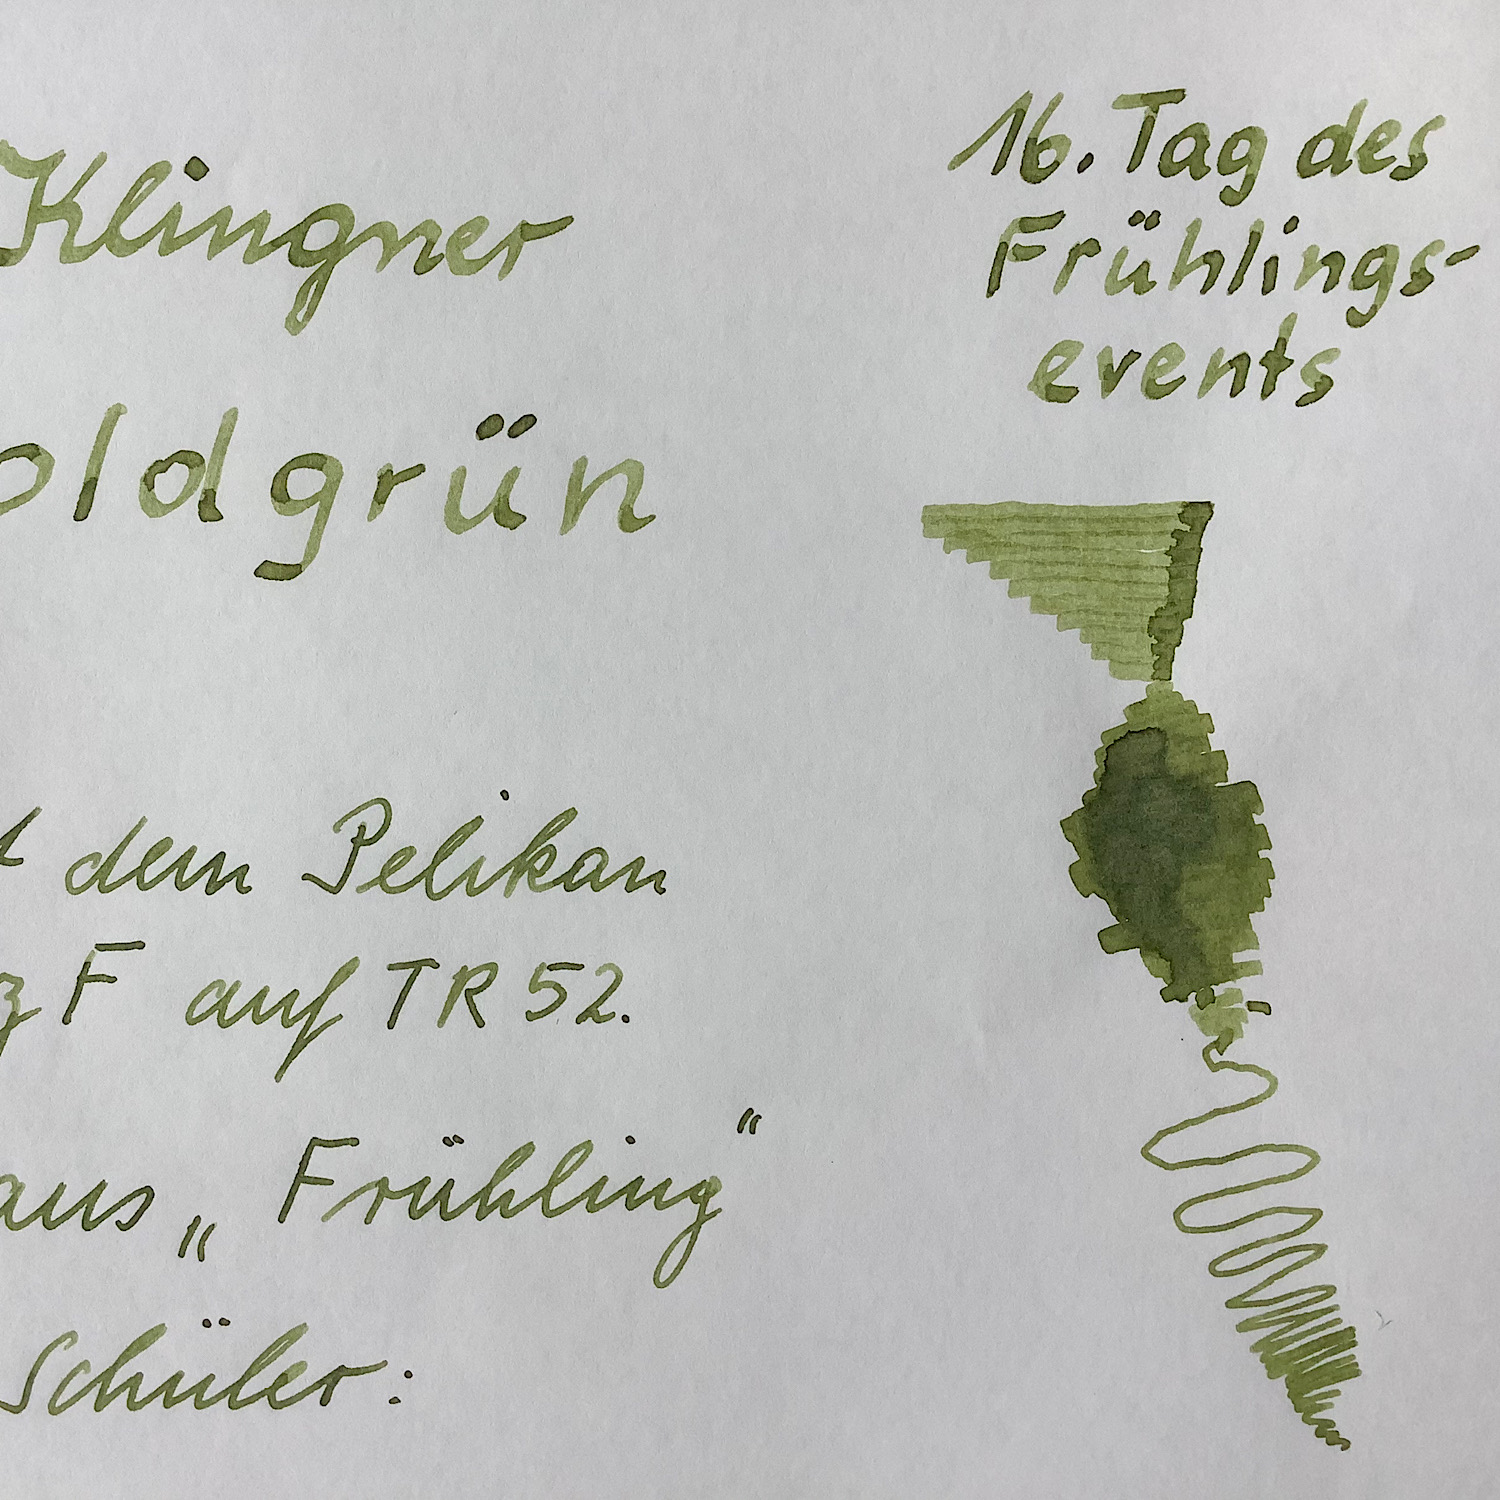 Klingner
oldgrün
16. Tag des
Frühlings-
events
t dem Pelikan
z F auf TR 52.
aus „Frühling“
Schüler: